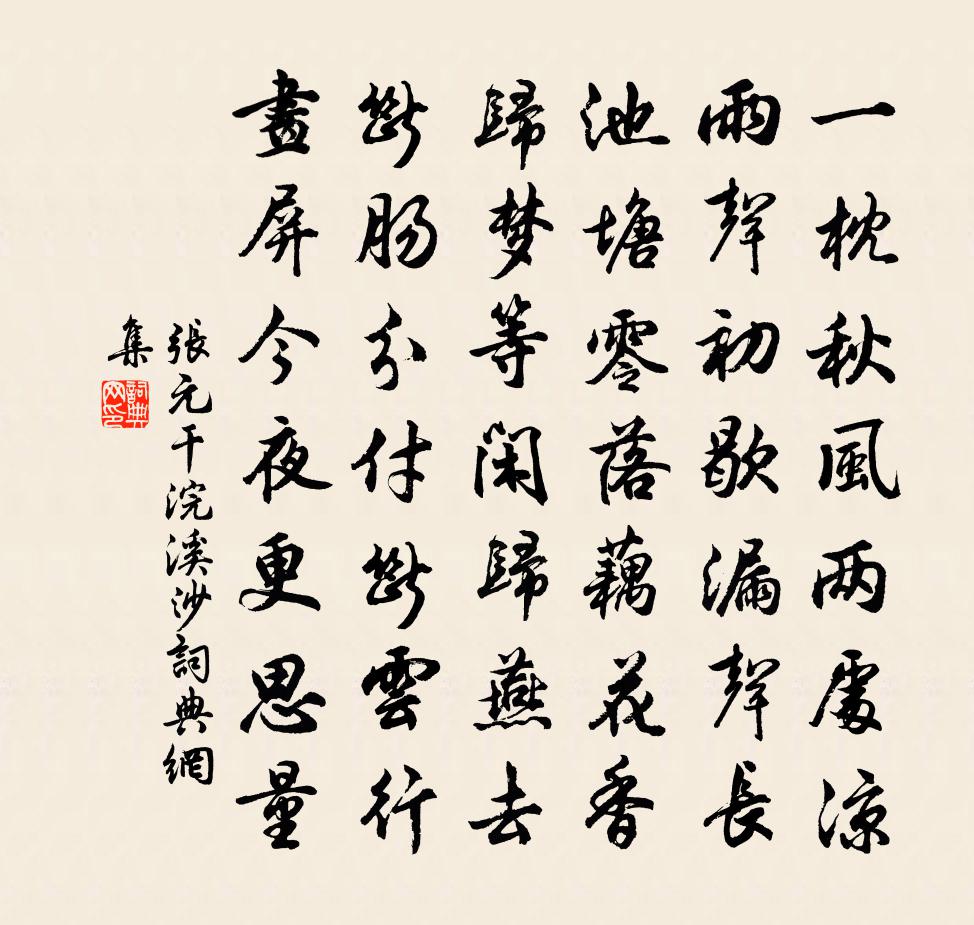 一枕秋風两處凉
雨聲初歇漏聲長
池塘零落藕花香
歸梦等闲歸燕去
斷肠分付斷雲行
畫屏今夜更思量
張元干浣溪沙詞典網
集
詞典網印